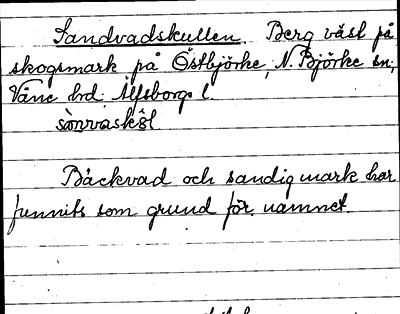 Sandvadskullen. Berg väst på
skogsmark på Östbjörke, N. Björke sn,
Väne hd. Älfsborgs l.
Bäckvad och sandig mark har
funnits som grund för namnet.